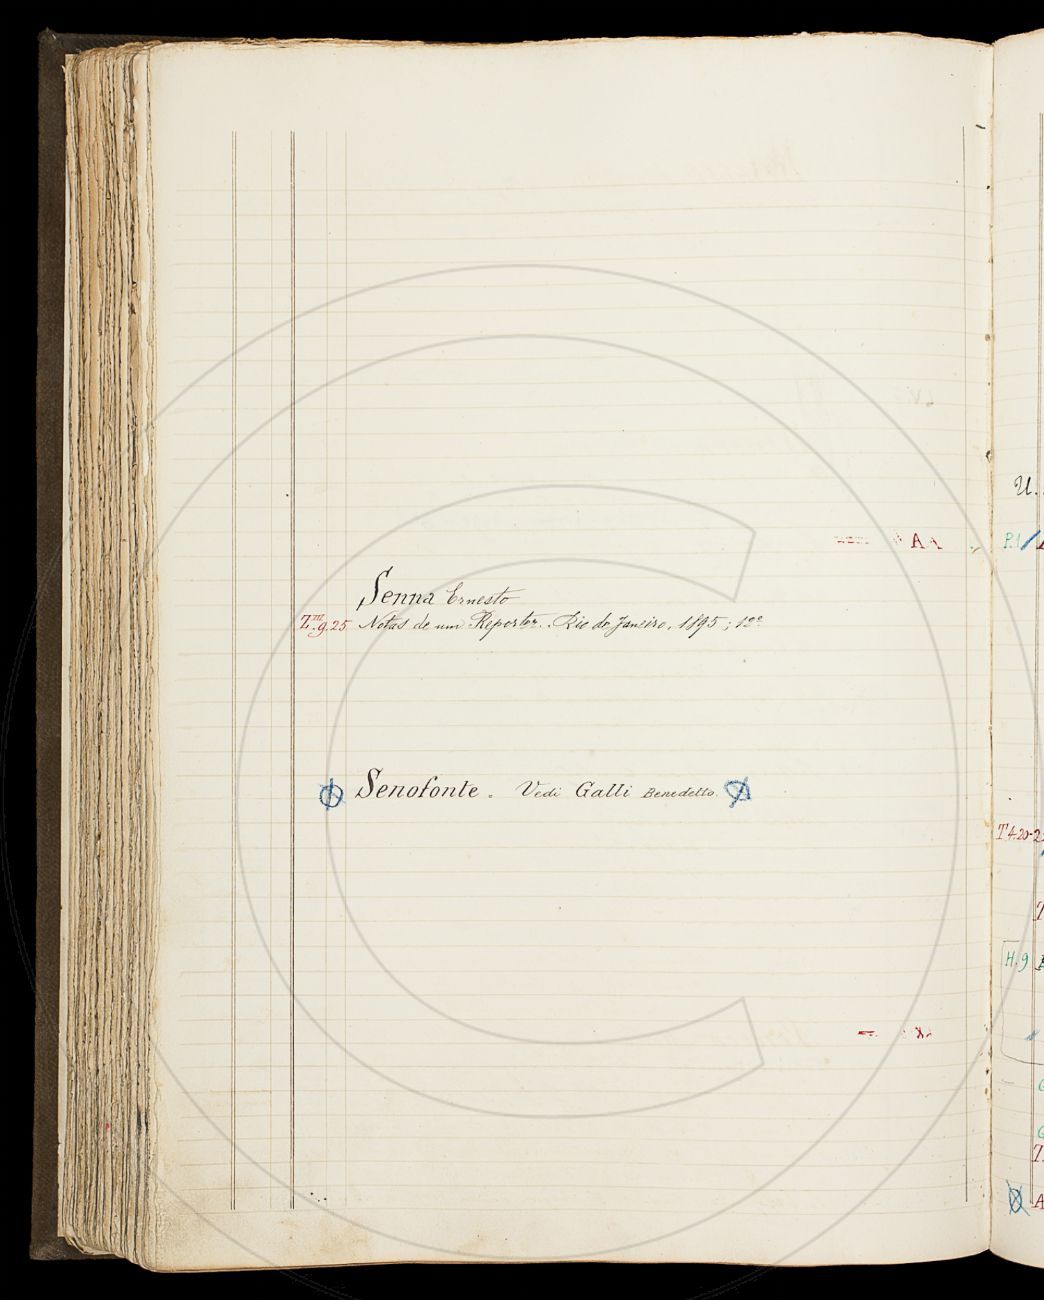 Senna Ernesto
Z.III.g.25 Notas de um Reporter. Rio de Janeiro, 1895; 12º
Senofonte. Vedi Galli Benedetto.
U.
P.1
T 4.20-2
H.9
A